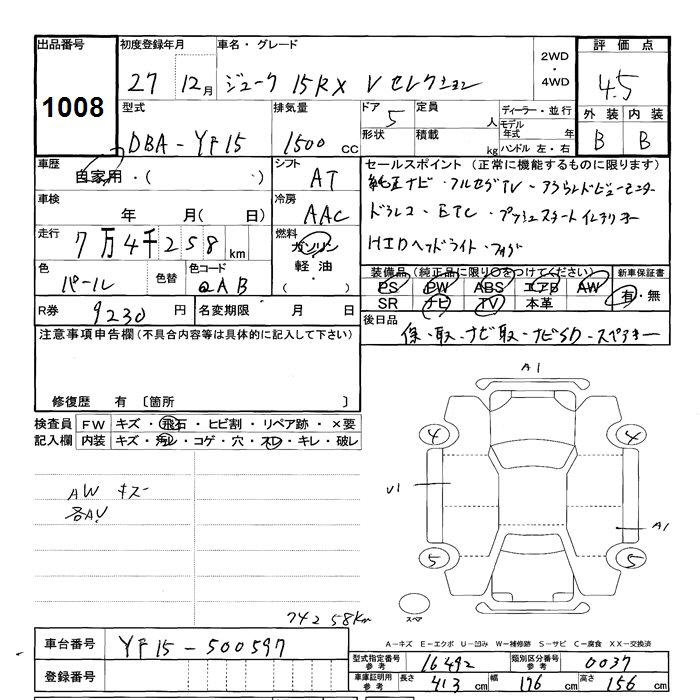 出品番号 初度登録年月 車名・グレード 2WD・4WD 評価点
1008 27 12月 ジューク 15RX Vセレクション 4.5
型式 排気量 ドア 5 定員 人 ディーラー・並行 外装 内装
DBA-YF15 1500cc 形状 積載 kg モデル年式 年 B B
ハンドル 左・右
車歴 自家用・( ) シフト AT セールスポイント(正常に機能するものに限ります)
車検 年 月( 日) 冷房 AAC 純正ナビ・フルセグTV・アラウンドビューモニター
走行 7万4千258km 燃料 ガソリン 軽油 ドラレコ・ETC・プッシュスタートインテリキー
HIDヘッドライト・フォグ
色 パール 色替 色コード QAB 装備品(純正品に限り○をつけてください) 新車保証書
PS PW ABS エアB AW 有・無
R券 9230円 名変期限 月 日 SR ナビ TV 本革
注意事項申告欄(不具合内容等は具体的に記入して下さい) 後日品 保・取・ナビ取・ナビSD・スペアキー
修復歴 有 〔箇所 〕 A1
検査員記入欄 FW キズ・飛石・ヒビ割・リペア跡・×要
内装 キズ・汚レ・コゲ・穴・スレ・キレ・破レ
4 4
AW キズ
各AU
U1
A1
5 5
スペア
74258Km
A-キズ E-エクボ U-凹み W-補修跡 S-サビ C-腐食 XX-交換済
車台番号 YF15-500597
型式指定番号参考 16492 類別区分番号参考 0037
登録番号 車庫証明用参考 長さ 413cm 幅 176cm 高さ 156cm